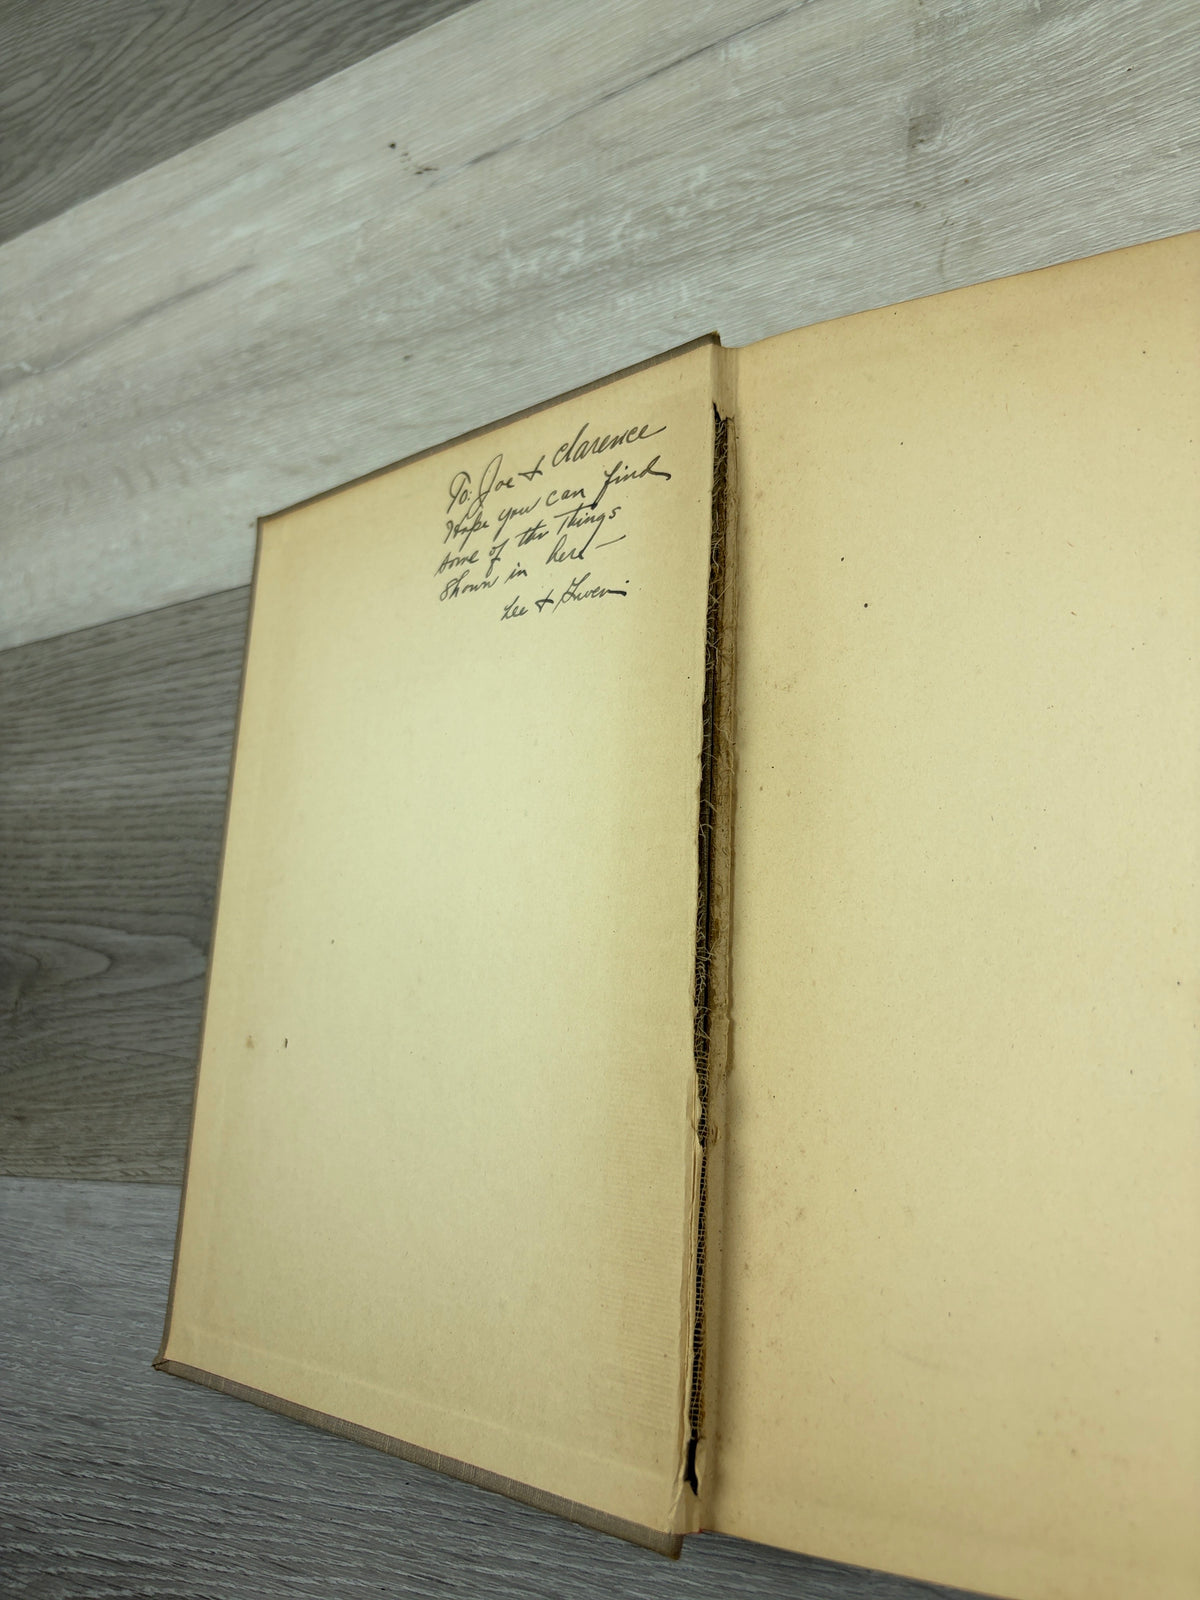 To: Joe + Clarence
Hope you can find
some of the things
shown in here —
Lee + Gwen